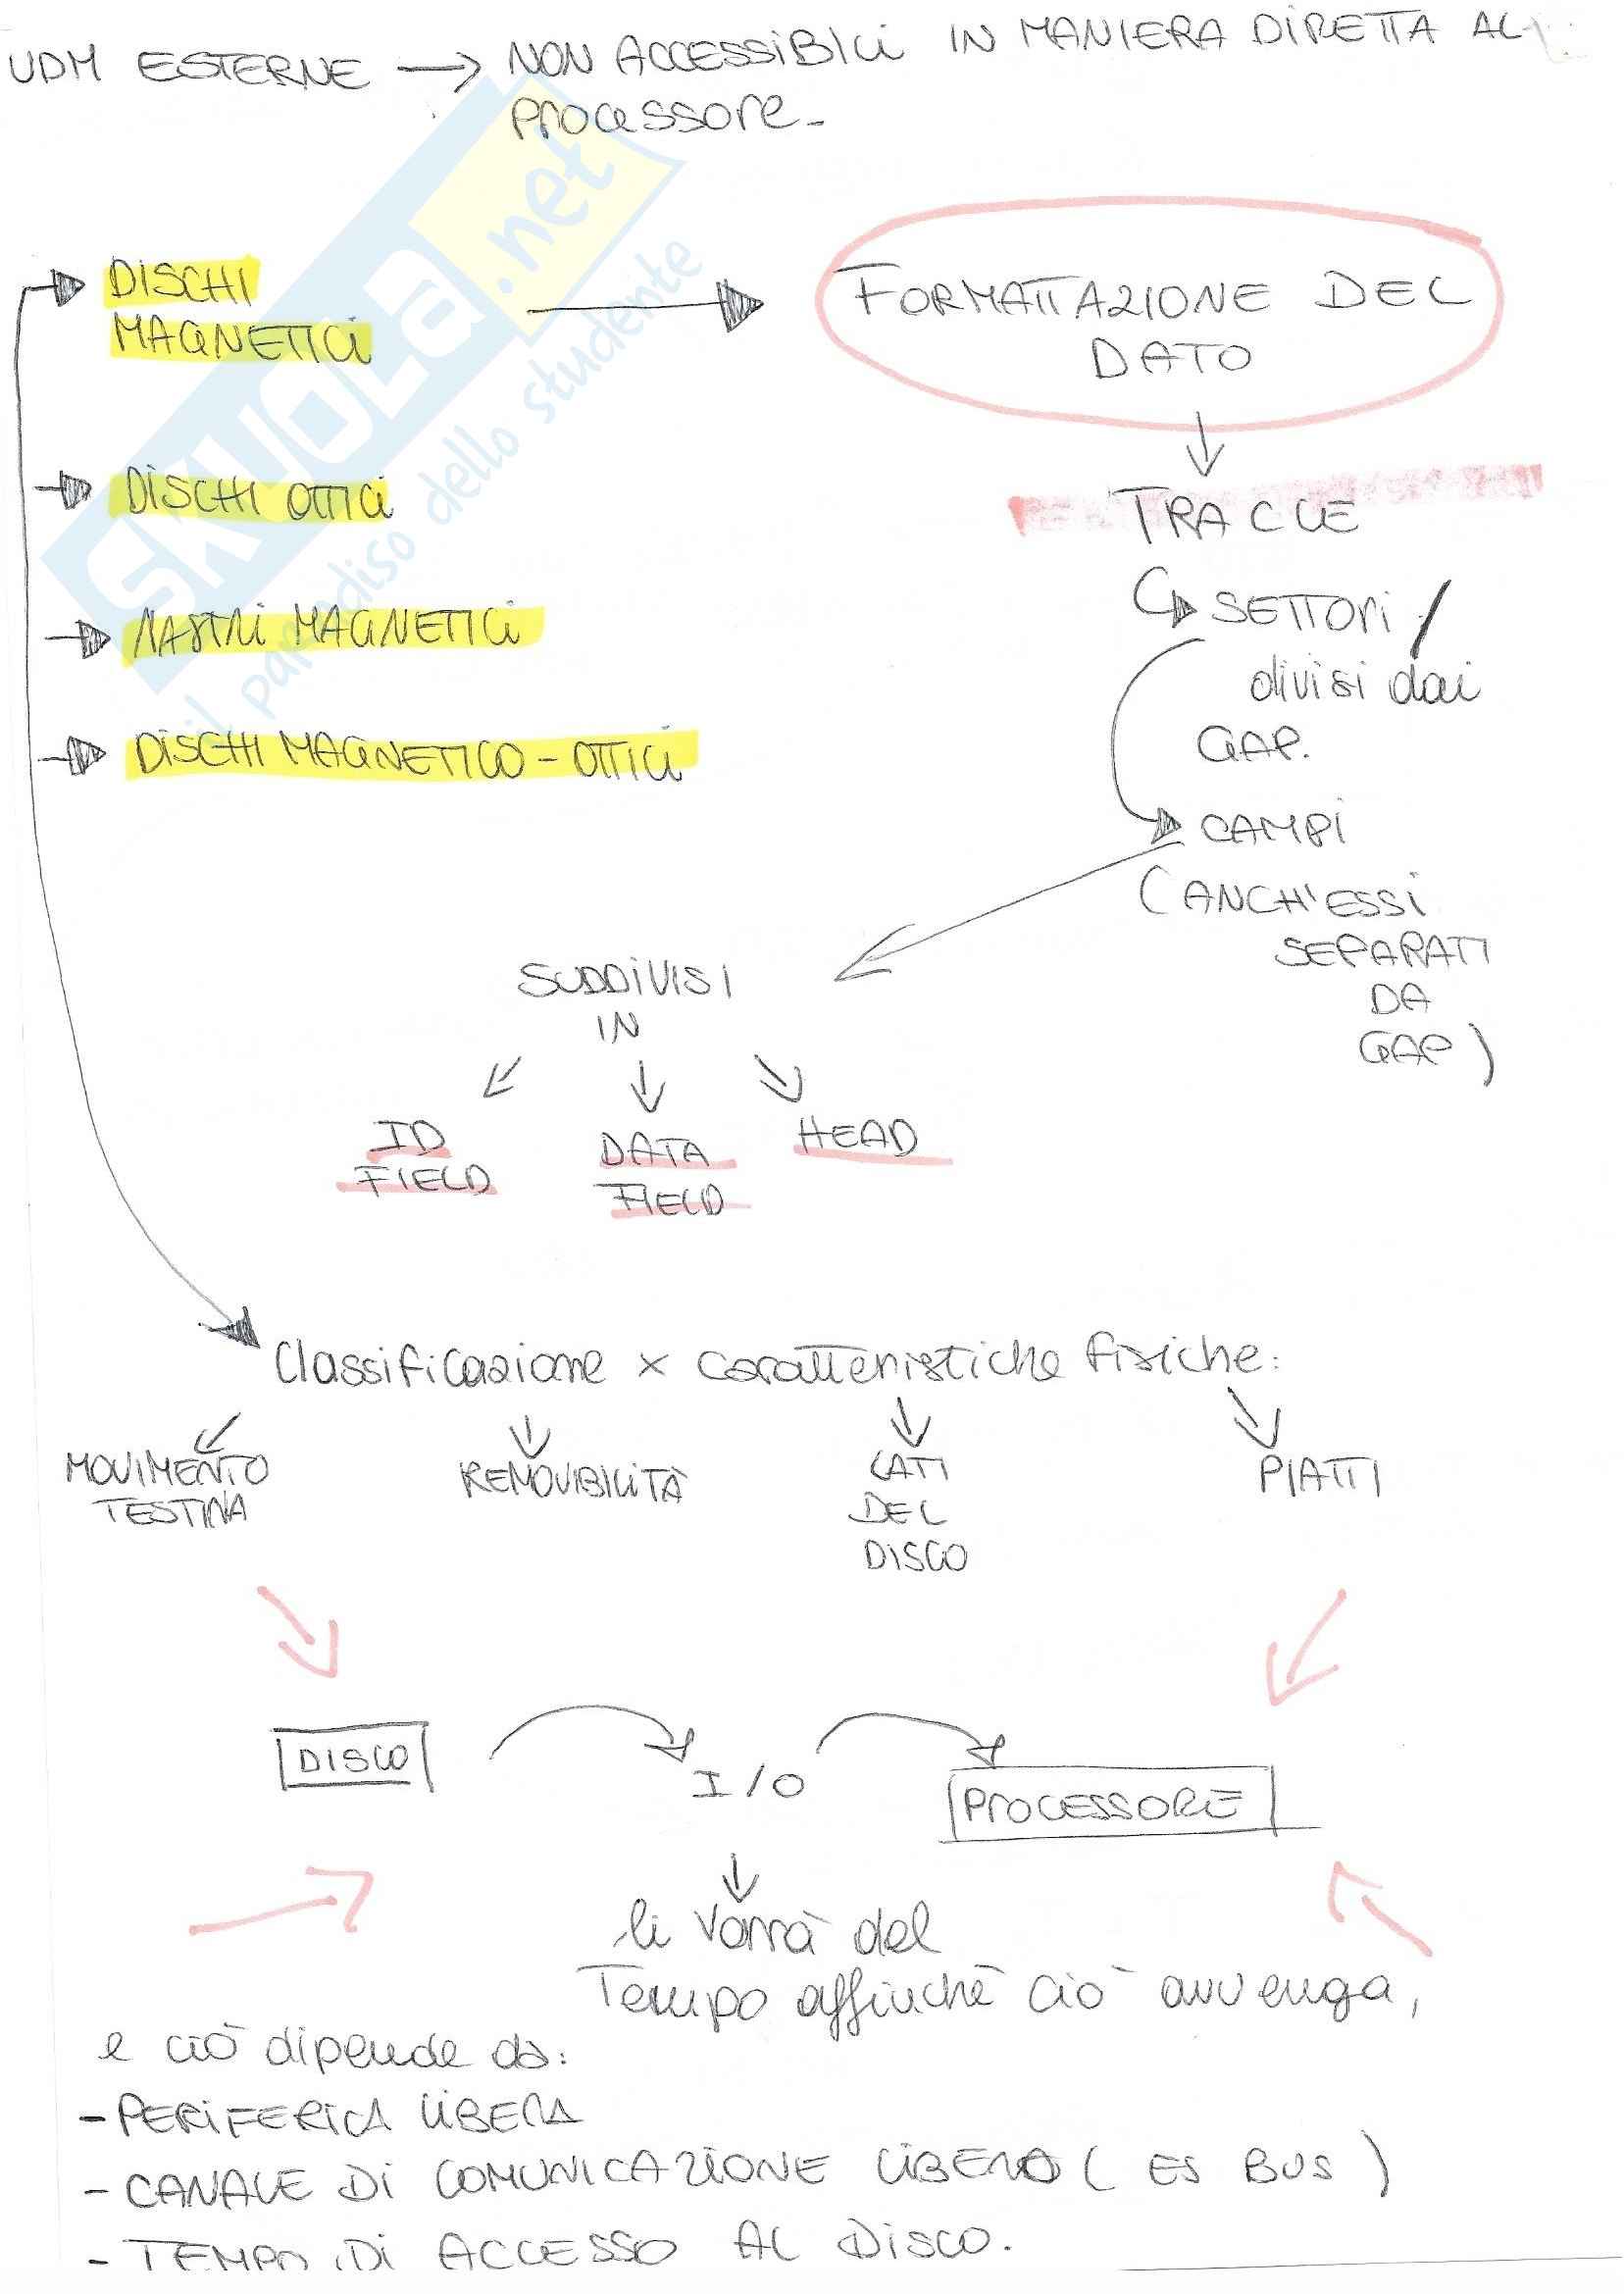 UDM ESTERNE → NON ACCESSIBILI IN MANIERA DIRETTA AL
processore.
DISCHI
MAGNETICI
FORMATTAZIONE DEL
DATO
DISCHI OTTICI
TRACCE
SETTORI /
divisi dai
GAP.
NASTRI MAGNETICI
DISCHI MAGNETICO-OTTICI
CAMPI
(ANCH'ESSI
SEPARATI
DA
GAP)
SUDDIVISI
IN
ID
FIELD
DATA
FIELD
HEAD
Classificazione x caratteristiche fisiche:
MOVIMENTO
TESTINA
REMOVIBILITÀ
LATI
DEL
DISCO
PIATTI
DISCO
I/O
PROCESSORE
li vorrà del
Tempo affinchè ciò avvenga,
e ciò dipende da:
- PERIFERICA LIBERA
- CANALE DI COMUNICAZIONE LIBERO (ES BUS)
- TEMPO DI ACCESSO AL DISCO.
SKUOLA.net
il paradiso dello studente